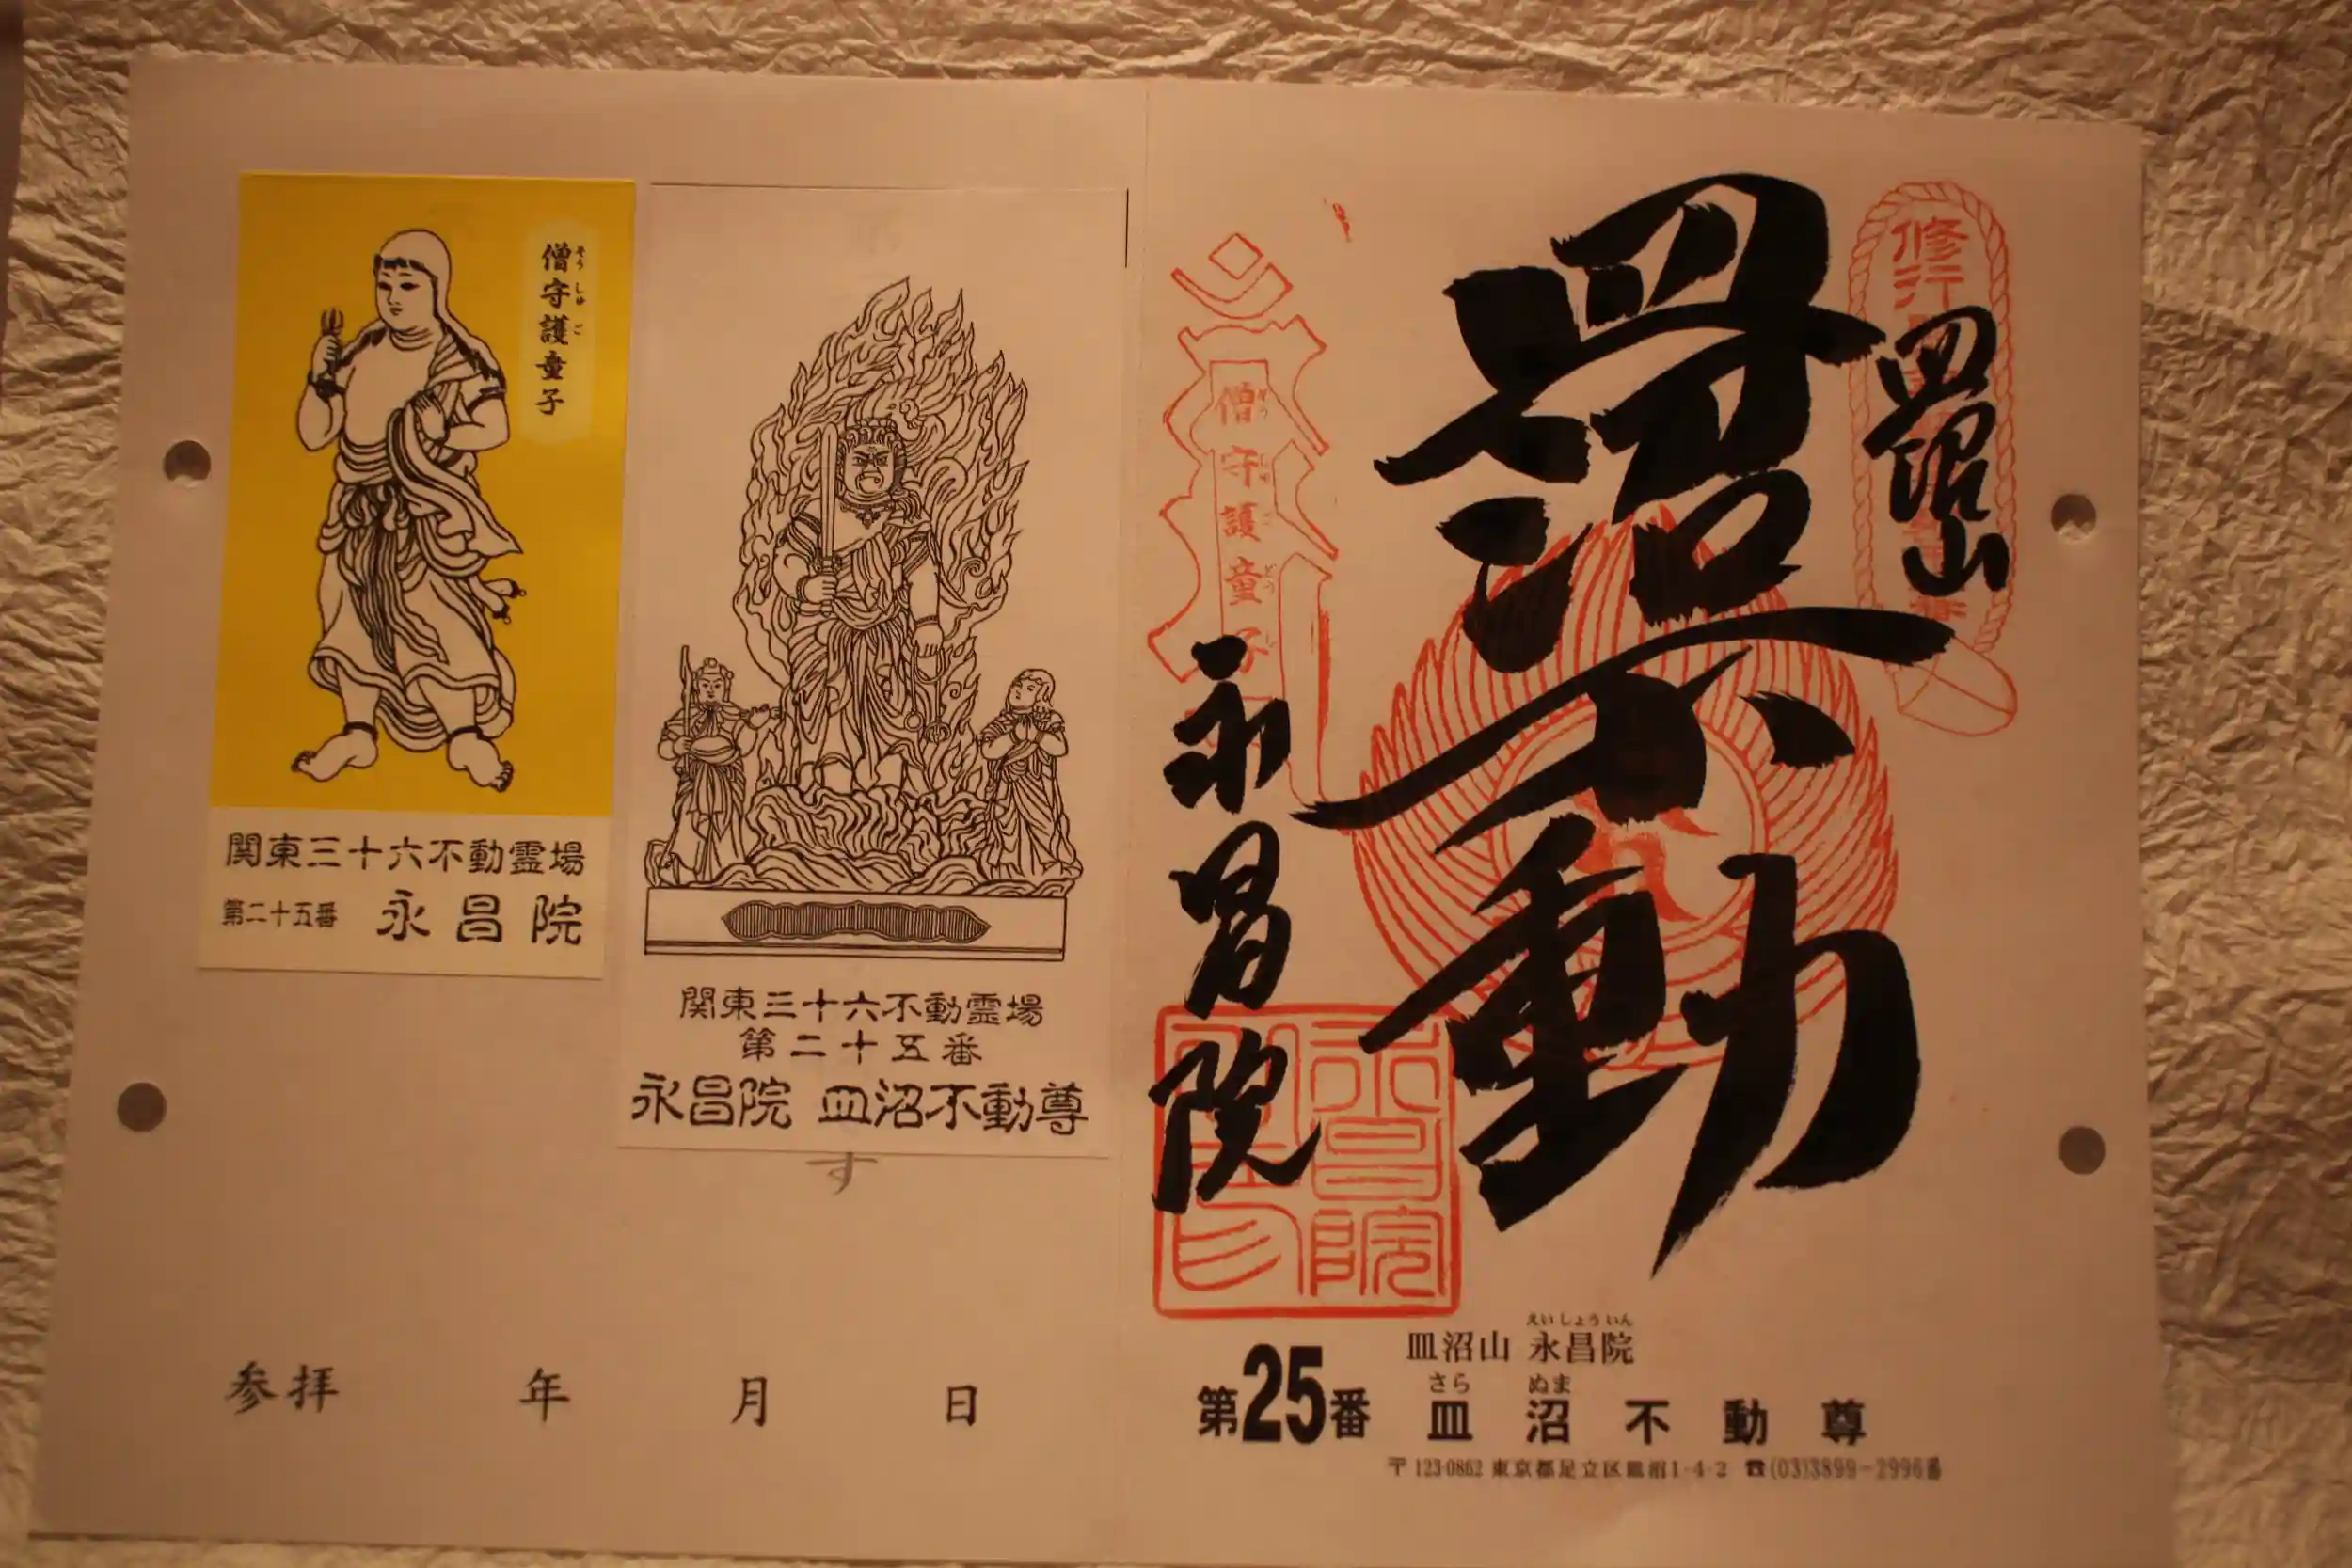 僧守護童子
そうしゅご
関東三十六不動霊場
第二十五番 永昌院
関東三十六不動霊場
第二十五番
永昌院 皿沼不動尊
す
参拝 年 月 日
修行
皿沼山
皿沼不動
僧守護童子
そうしゅごどうじ
永昌院
永昌院
えいしょういん
皿沼山 永昌院
さら ぬま
第25番 皿沼不動尊
〒123-0862 東京都足立区皿沼1-4-2 ☎(03)3899-2996番